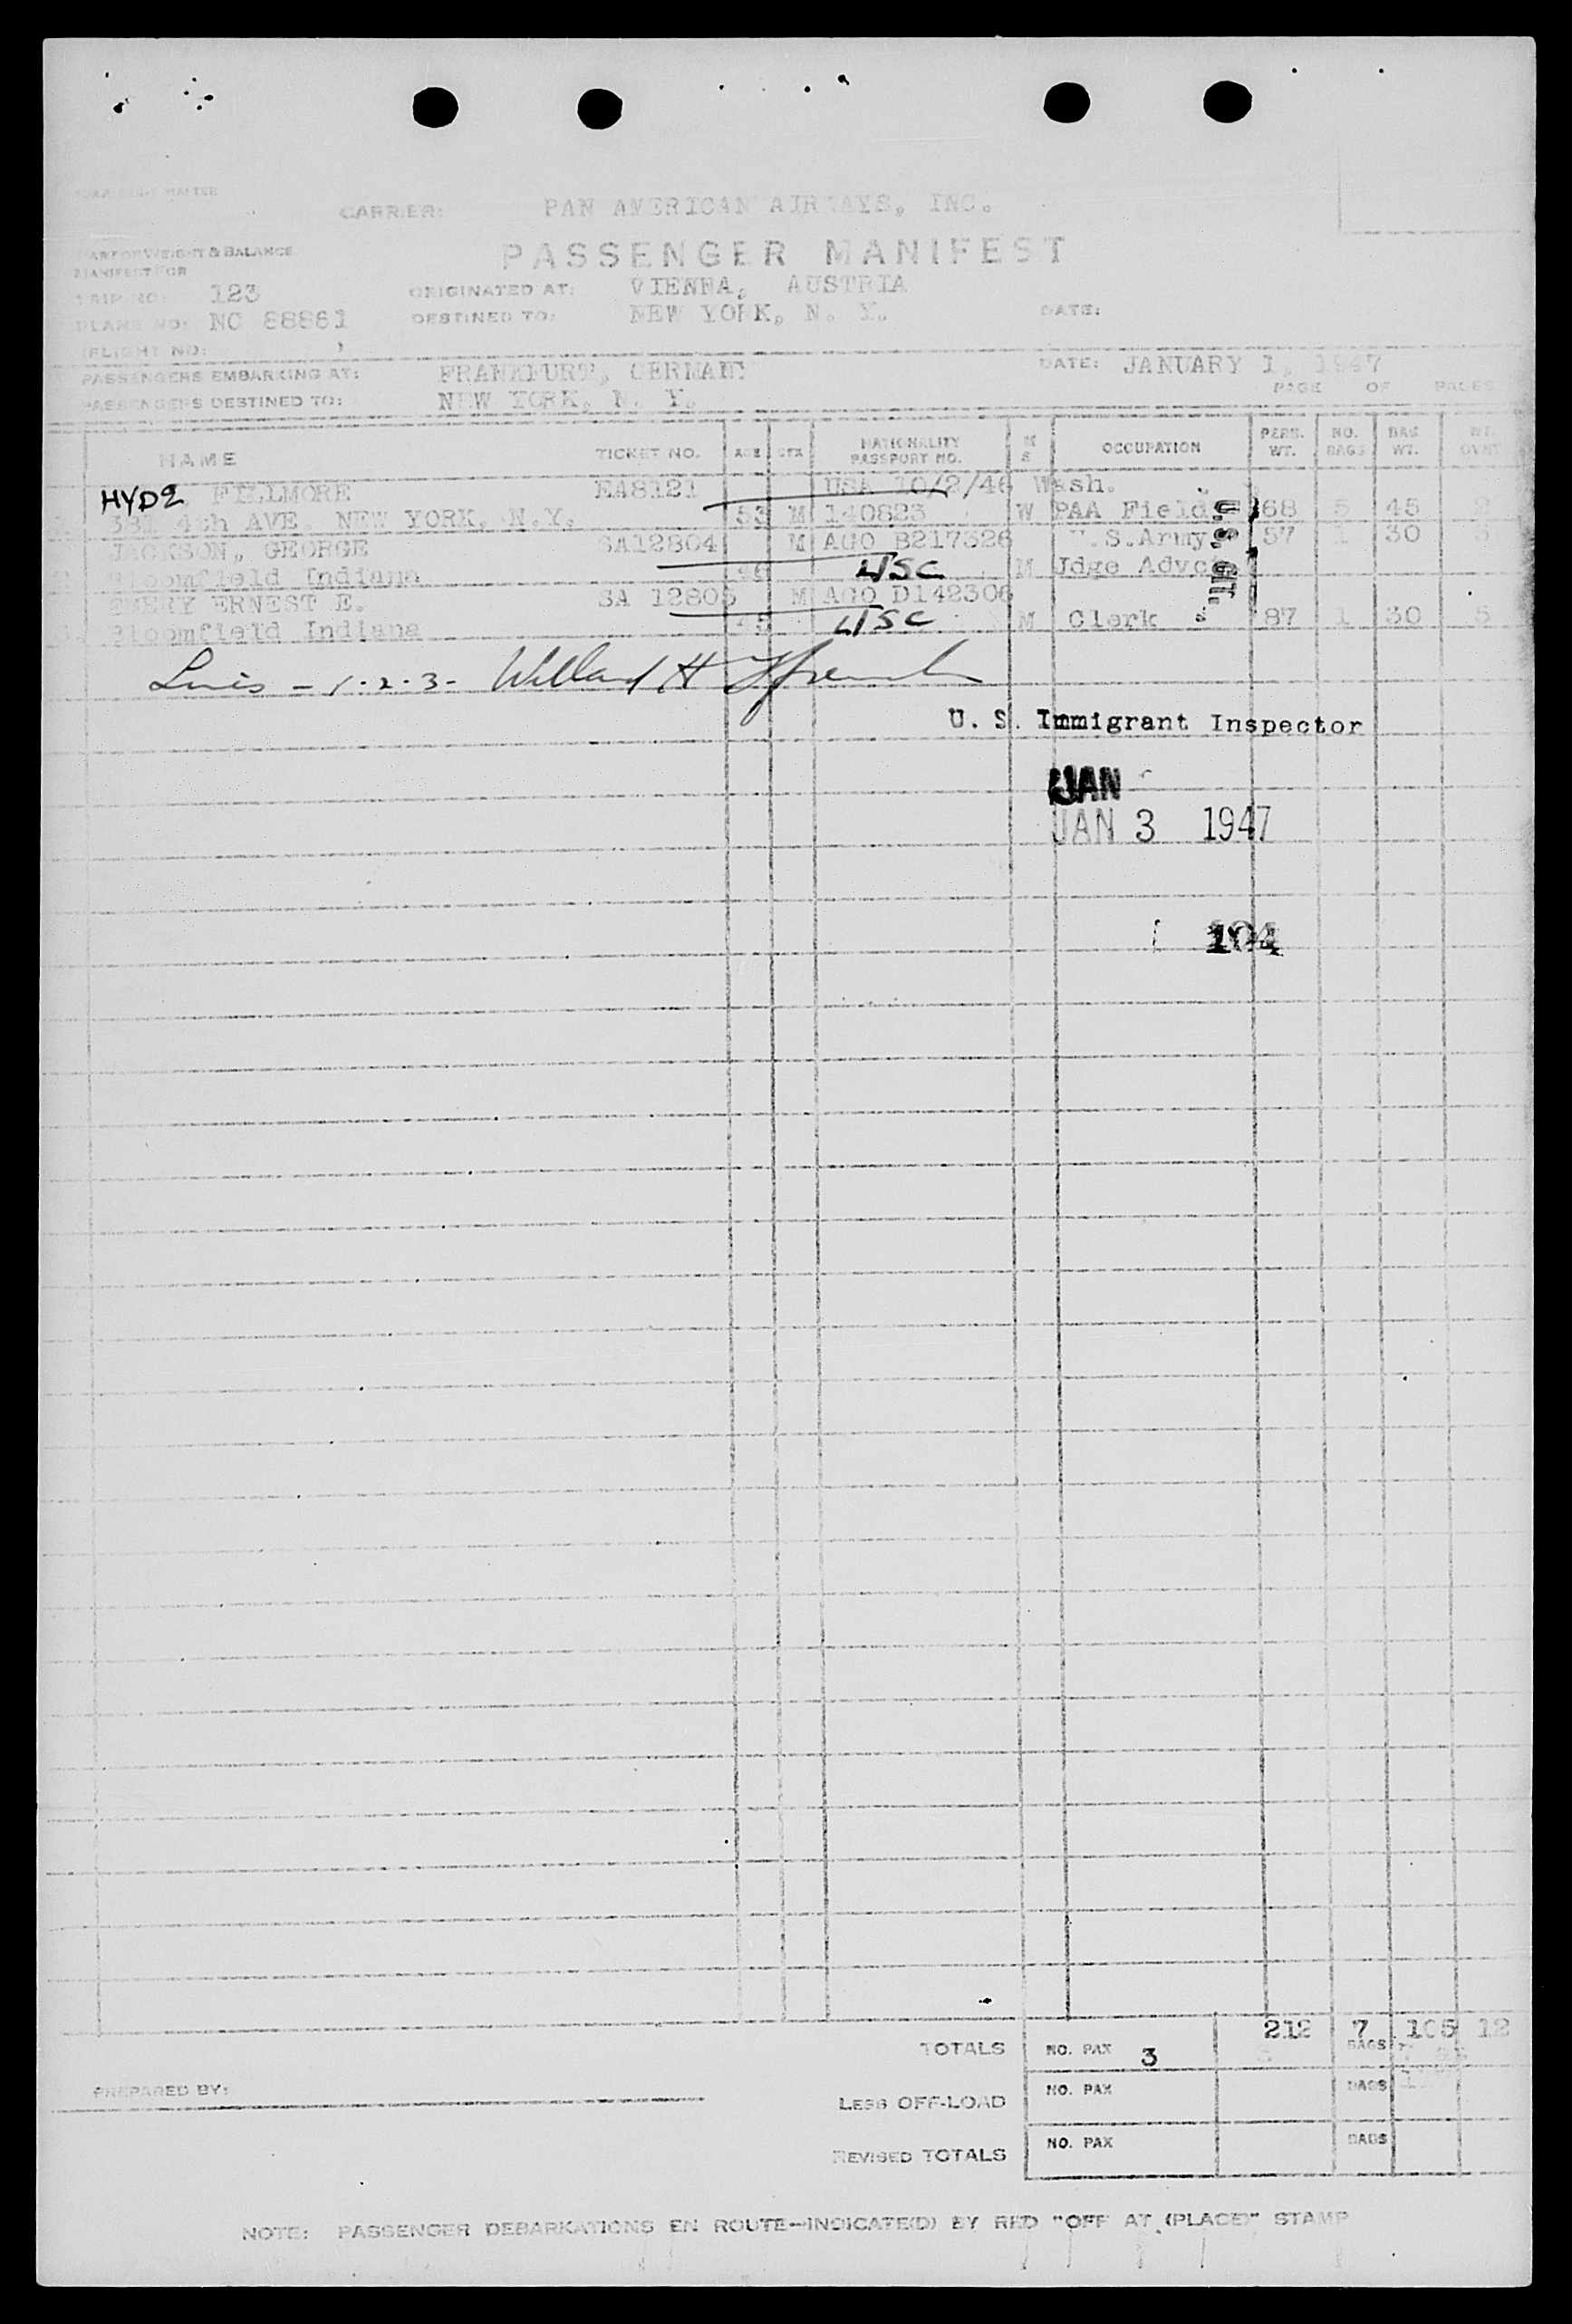 CARRIER: PAN AMERICAN AIRWAYS, INC.
PART OF WEIGHT & BALANCE
MANIFEST FOR
PASSENGER MANIFEST
TRIP NO: 123 ORIGINATED AT: VIENNA, AUSTRIA
PLANE NO: NC 88861 DESTINED TO: NEW YORK, N. Y. DATE:
(FLIGHT NO: )
PASSENGERS EMBARKING AT: FRANKFURT, GERMANY DATE: JANUARY 1, 1947
PASSENGERS DESTINED TO: NEW YORK, N. Y. PAGE OF PAGES
NAME TICKET NO. AGE SEX NATIONALITY PASSPORT NO. M S OCCUPATION PERS. WT. NO. BAGS BAG WT. WT. OVWT
HYDE FILLMORE EA8121 USA 10/2/46 Wash.
4th AVE. NEW YORK, N.Y. 53 M 140823 W PAA Field 68 5 45 2
JACKSON, GEORGE SA12804 M AGO B217326 U.S.Army 57 1 30 5
Bloomfield Indiana 46 USC M Jdge Advct
ERNEST E. SA 12805 M AGO D142306
Bloomfield Indiana 45 USC M Clerk 87 1 30 5
U.S. CIT.
Lines - 1-2-3- Willard H
U. S. Immigrant Inspector
JAN
JAN 3 1947
104
TOTALS NO. PAX 3 212 7 BAGS 105 12
PREPARED BY:
LESS OFF-LOAD NO. PAX BAGS
REVISED TOTALS NO. PAX BAGS
NOTE: PASSENGER DEBARKATIONS EN ROUTE—INDICATE(D) BY RED "OFF AT (PLACE)" STAMP